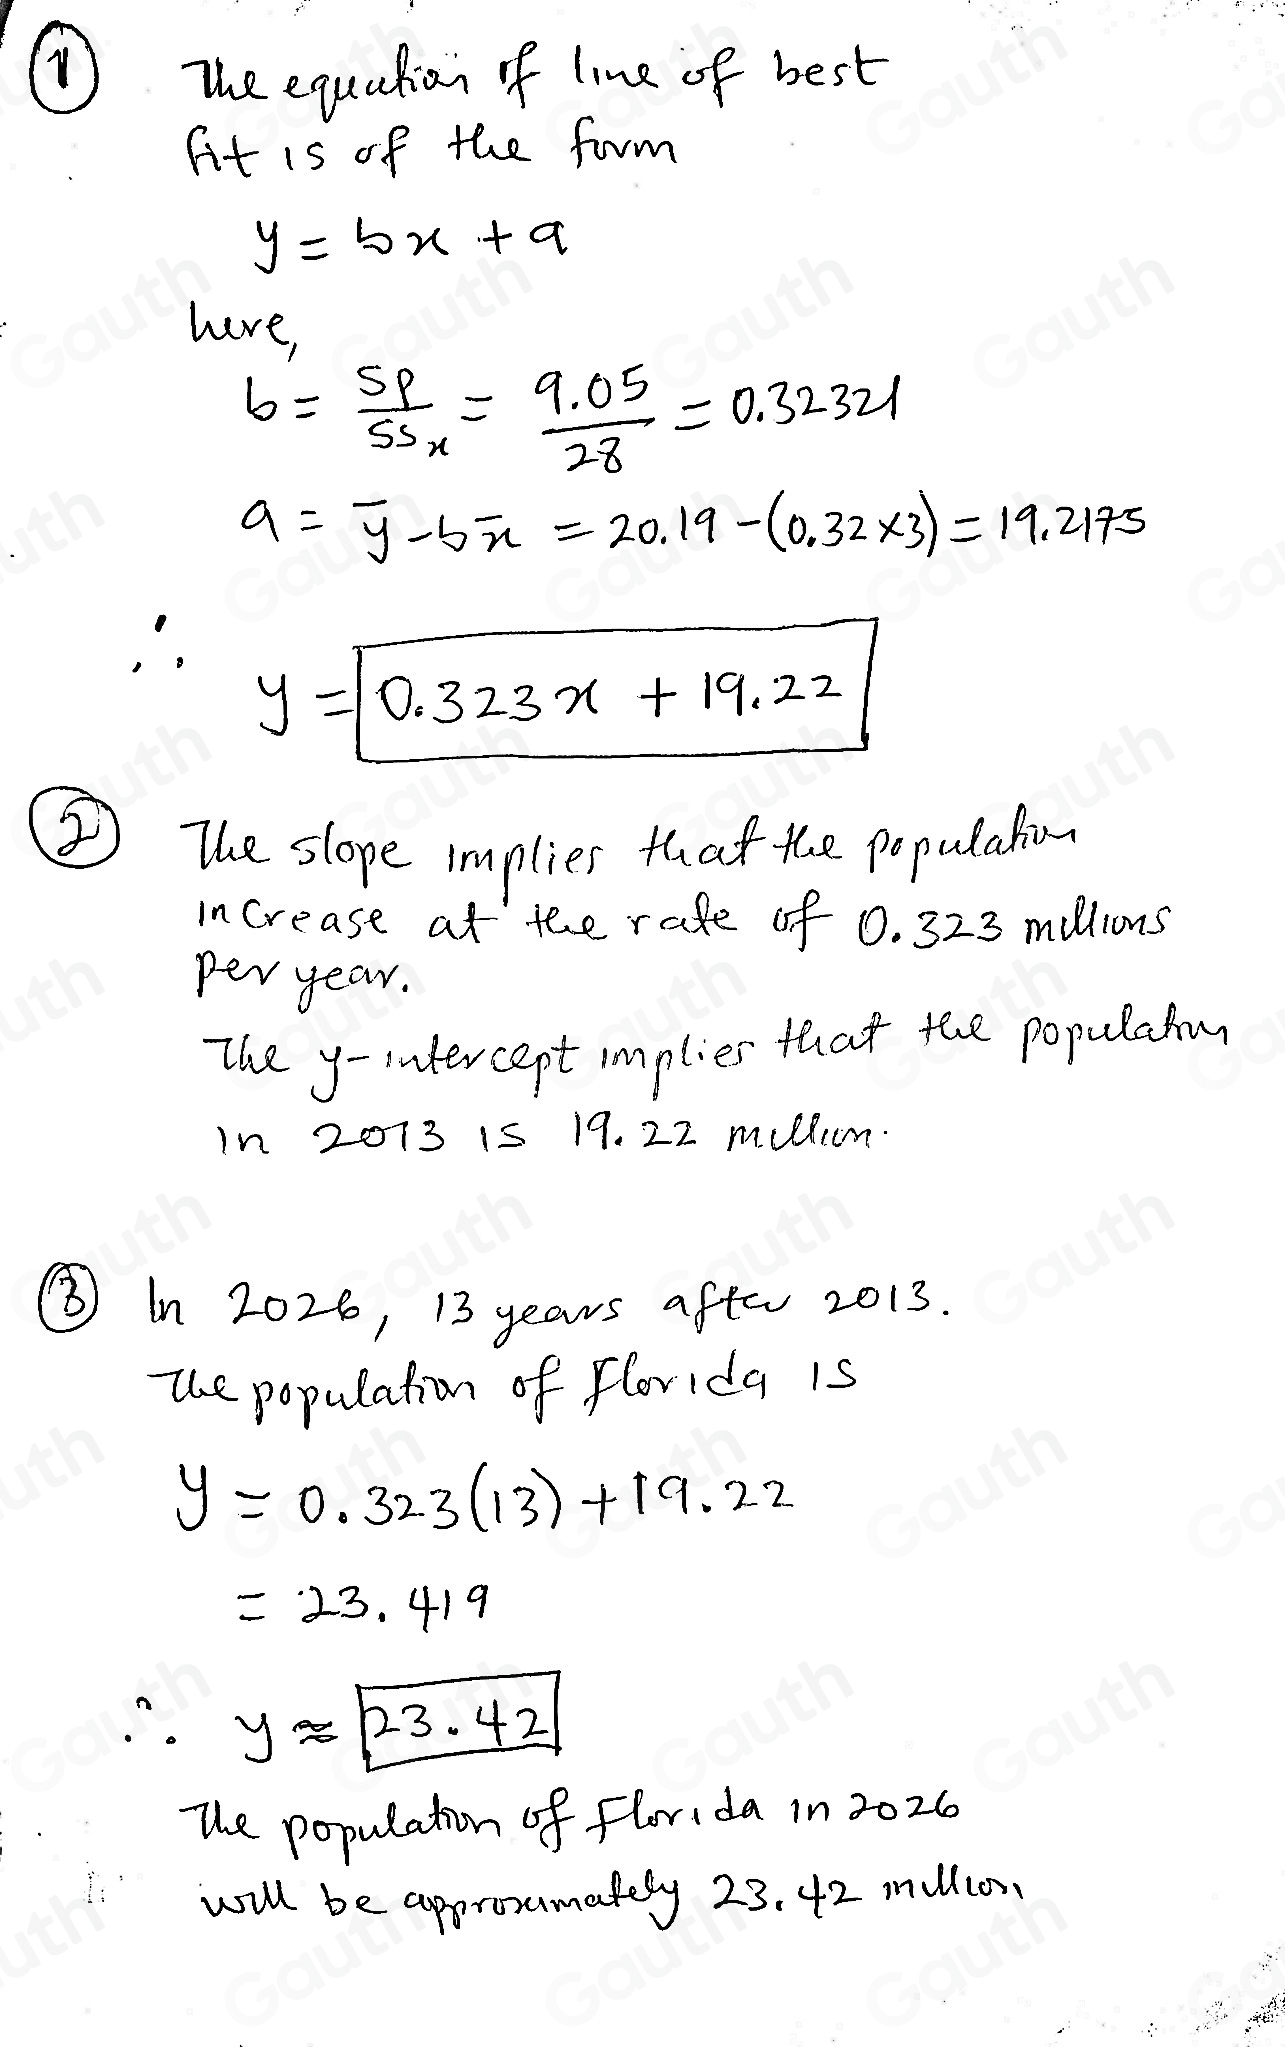 1 The equation of line of best
fit is of the form
y = bx + a
here,
b = SP/SSx = 9.05/28 = 0.32321
a = ȳ - bx̄ = 20.19 - (0.32 × 3) = 19.2175
∴ y = 0.323x + 19.22
2 The slope implies that the population
increase at the rate of 0.323 millions
per year.
The y-intercept implies that the population
in 2013 is 19.22 million.
3 In 2026, 13 years after 2013.
The population of Florida is
y = 0.323(13) + 19.22
= 23.419
∴ y ≈ 23.42
The population of Florida in 2026
will be approximately 23.42 million
Gauth